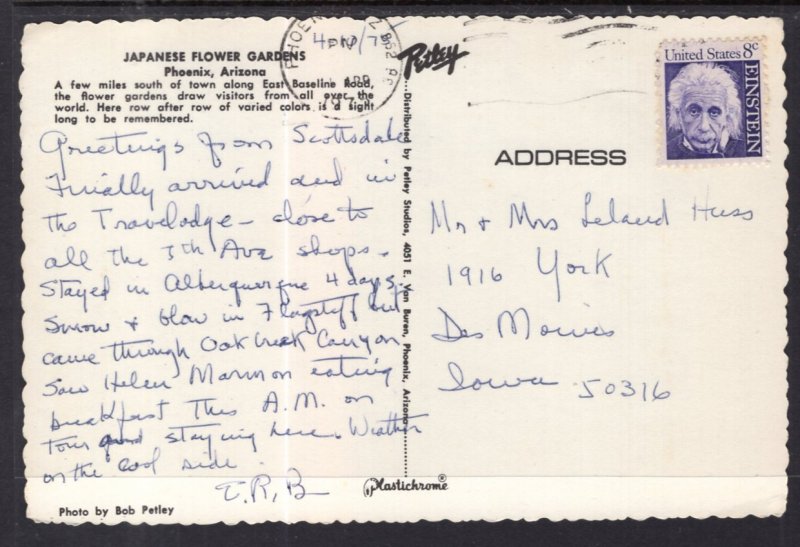 JAPANESE FLOWER GARDENS
Phoenix, Arizona
A few miles south of town along East Baseline Road,
the flower gardens draw visitors from all over the
world. Here row after row of varied colors is a sight
long to be remembered.
Greetings from Scottsdale
Finally arrived and in
the Travelodge - close to
all the 5th Ave shops.
Stayed in Alberquerque 4 days
Snow & blow in Flagstaff but
came through Oak Creek Canyon
Saw Helen Marmon eating
breakfast this A.M. on
tour and staying here. Weather
on the cool side
E.R.B
Photo by Bob Petley
Plastichrome®
Petley
Distributed by Petley Studios, 4051 E. Van Buren, Phoenix, Arizona
PHOENIX
PM
APR
852
United States 8c
EINSTEIN
ADDRESS
Mr & Mrs Leland Huss
1916 York
Des Moines
Iowa 50316